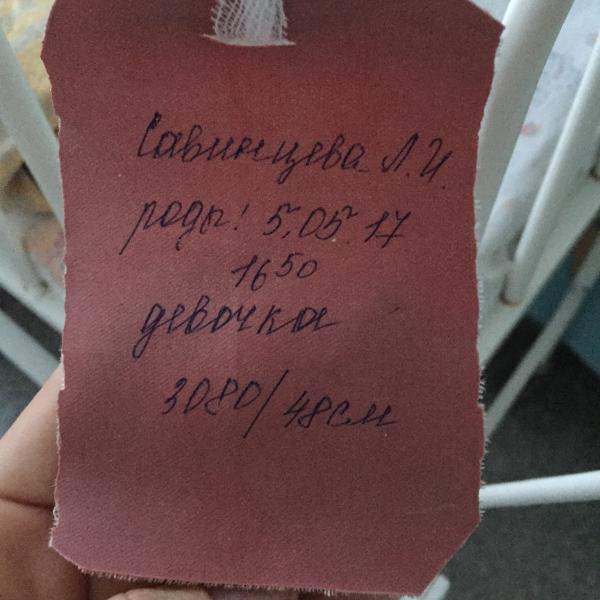 Савинцева Л.И.
роды! 5.05.17
16 50
девочка
3080/48см